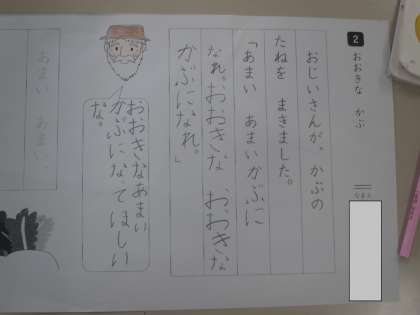 2
おおきな かぶ
なまえ
おじいさんが、かぶの
たねを まきました。
「あまい あまいかぶに
なれ。おおきな おおきな
かぶになれ。」
おおきなあまい
かぶになてほしい
な。
あまい あまい